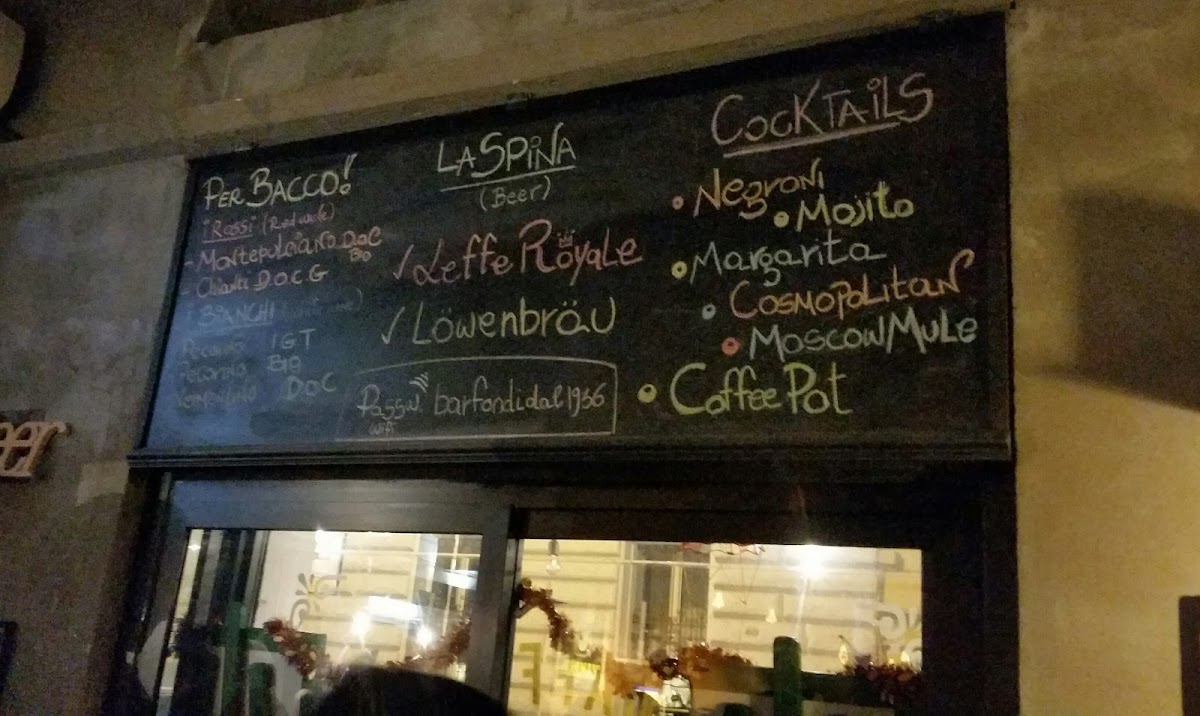 PER BACCO!
i Rossi (Red wine)
- Montepulciano DOC
BIO
- Chianti D.O.C.G
i BIANCHI
Pecorino IGT
Pecorino BIO
Vermentino DOC
LA SPINA
(Beer)
✓ Leffe Royale
✓ Löwenbräu
Passw. barfondidal1936
wifi
COCKTAILS
• Negroni
• Mojito
• Margarita
• COSMOPOLITAN
• MOSCOW MULE
• Coffee Pot